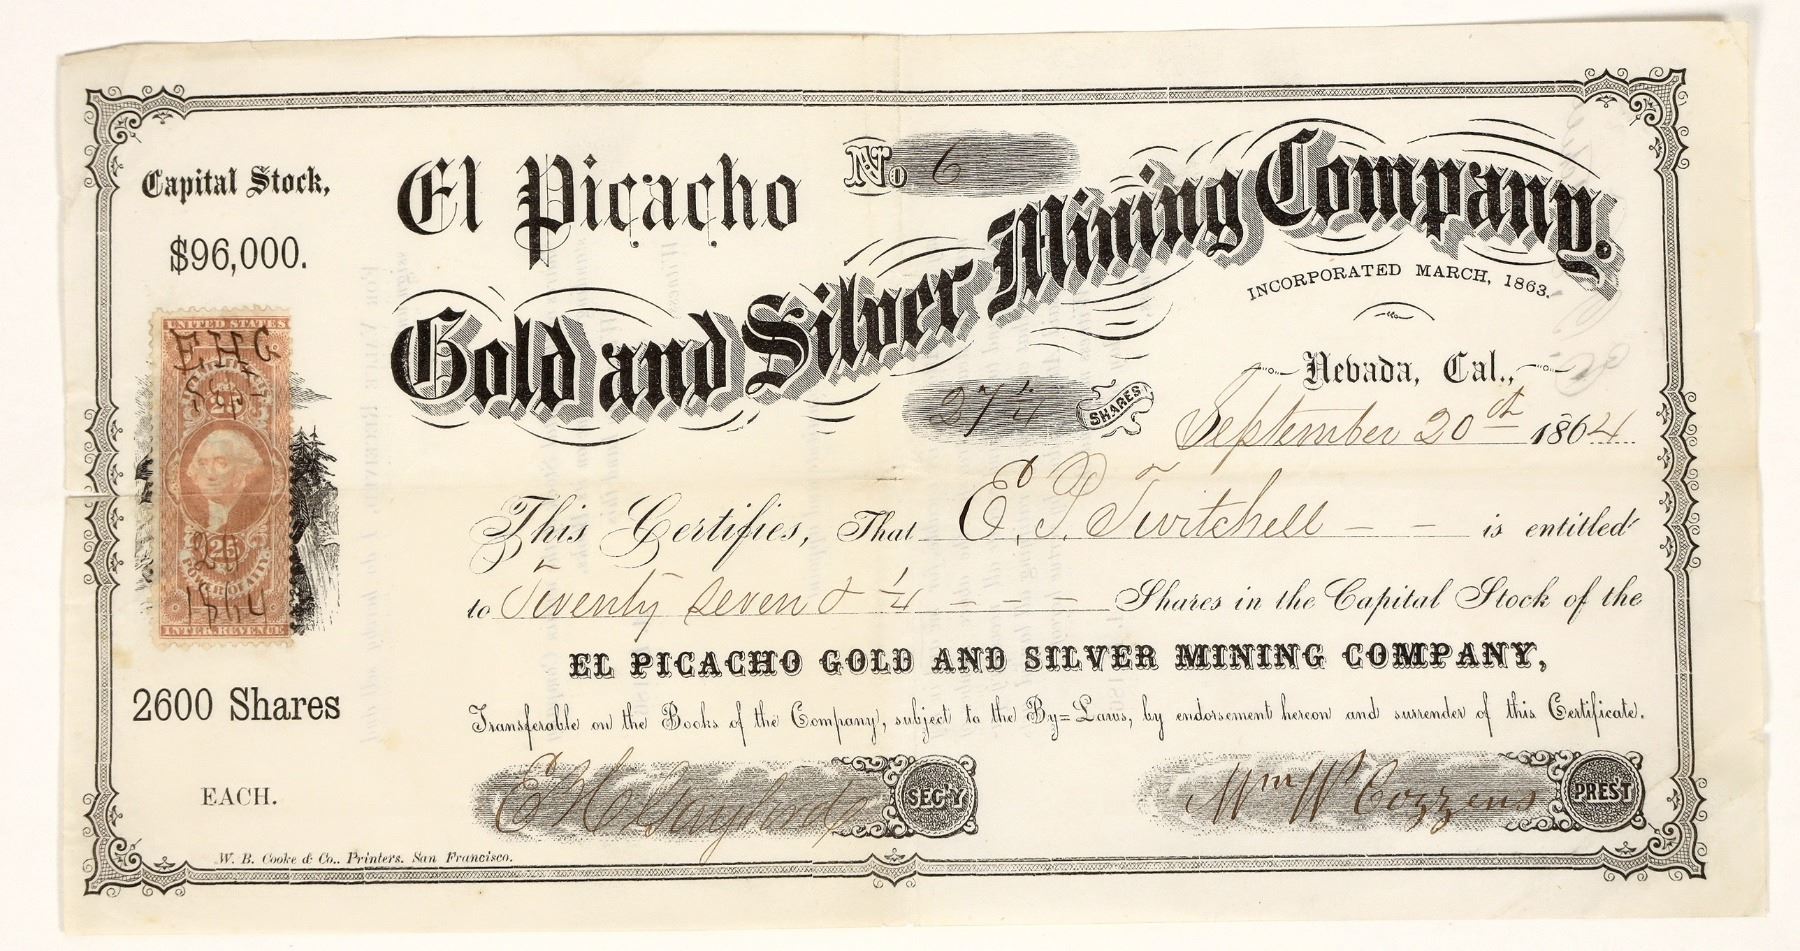 Capital Stock,
$96,000.
El Picacho
No. 6
Gold and Silver Mining Company.
INCORPORATED MARCH, 1863.
27 1/4 SHARES
Nevada, Cal.,
September 20th 1864
UNITED STATES
E H G
Sept
25
20
1864
INTER. REVENUE
This Certifies, That E. P. Twitchell is entitled
to Twenty seven & 1/4 Shares in the Capital Stock of the
EL PICACHO GOLD AND SILVER MINING COMPANY,
Transferable on the Books of the Company, subject to the By=Laws, by endorsement hereon and surrender of this Certificate.
2600 Shares
EACH.
E H Gaylord SEC'Y
Wm W Cozzens PRES'T
W. B. Cooke & Co., Printers. San Francisco.